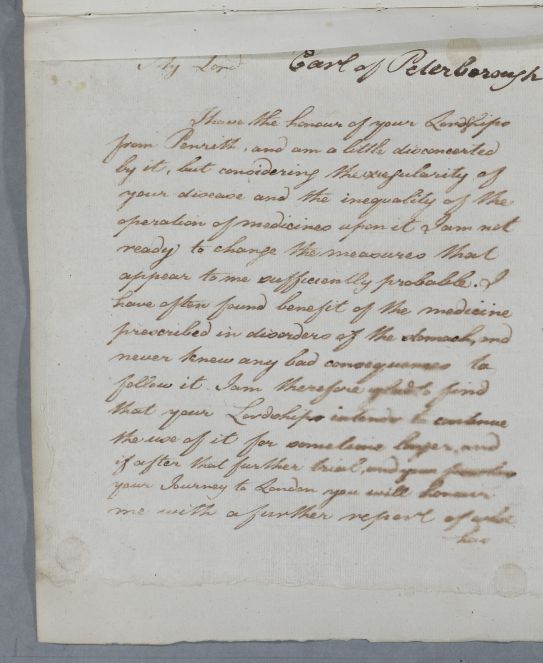 My Lord Earl of Peterborough
I have the honour of your Lordships
from Penrith, and am a little disconcerted
by it, but considering the irregularity of
your disease and the inequality of the
operation of medicines upon it I am not
ready to change the measures that
appear to me sufficiently probable. I
have often found benefit of the medicine
prescribed in disorders of the stomach, and
never knew any bad consequences to
follow it. I am therefore glad to find
that your Lordships intends to continue
the use of it for sometime longer, and
if after that further trial, and
your Journey to London you will honour
me with a further report of what
has